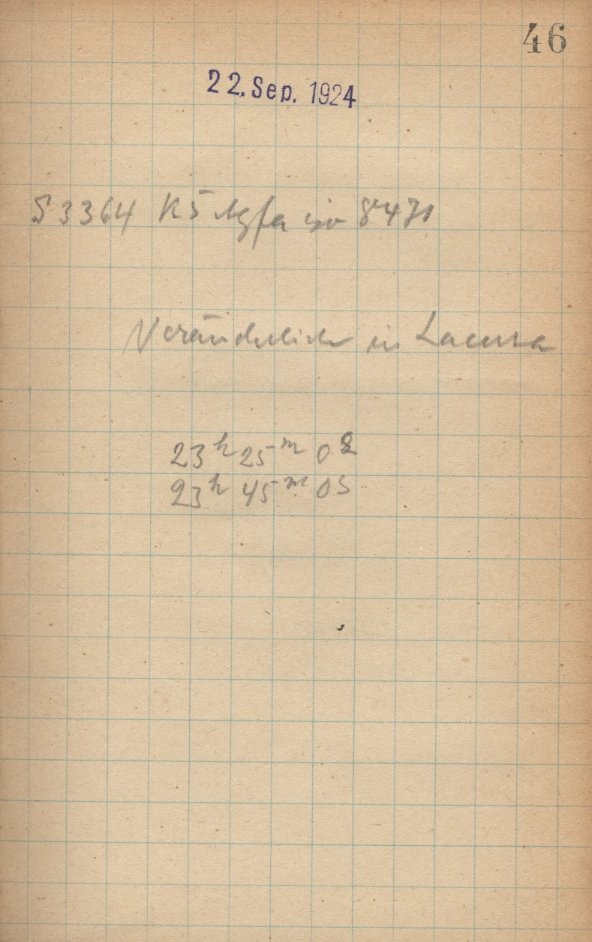 46
22. Sep. 1924
S 3364 K5 Agfa iso 8471
Veränderlicher in Lacerta
23h 25m 0s
23h 45m 0s